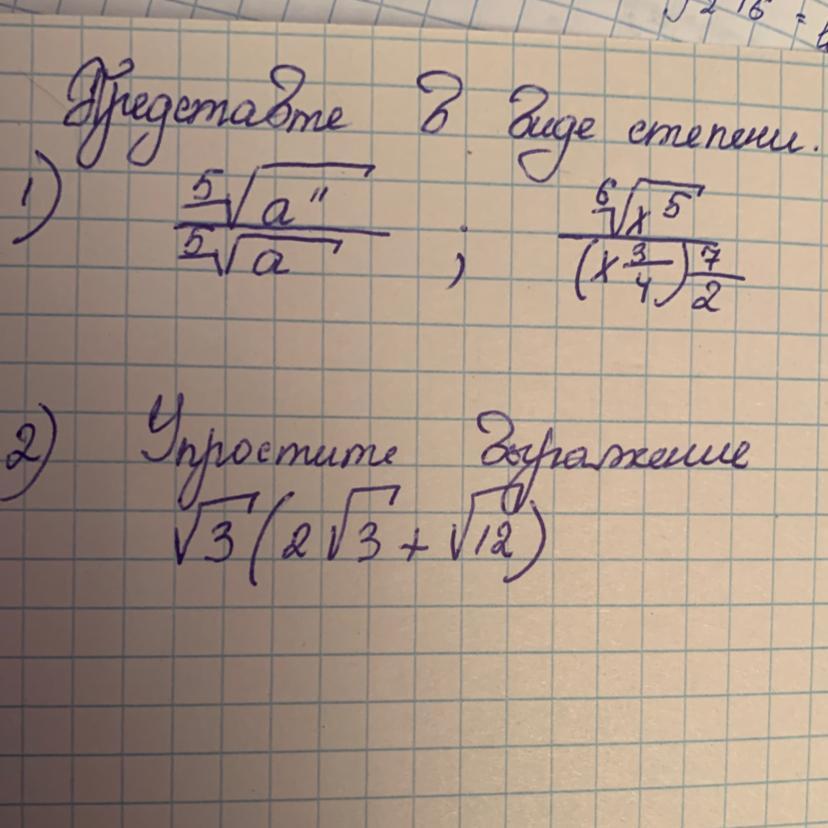 √2 16 =
Представте в виде степени.
1) ⁵√a¹¹ / ⁵√a ; ⁶√x⁵ / (x^(3/4))^(7/2)
2) Упростите выражение
√3 (2√3 + √12)